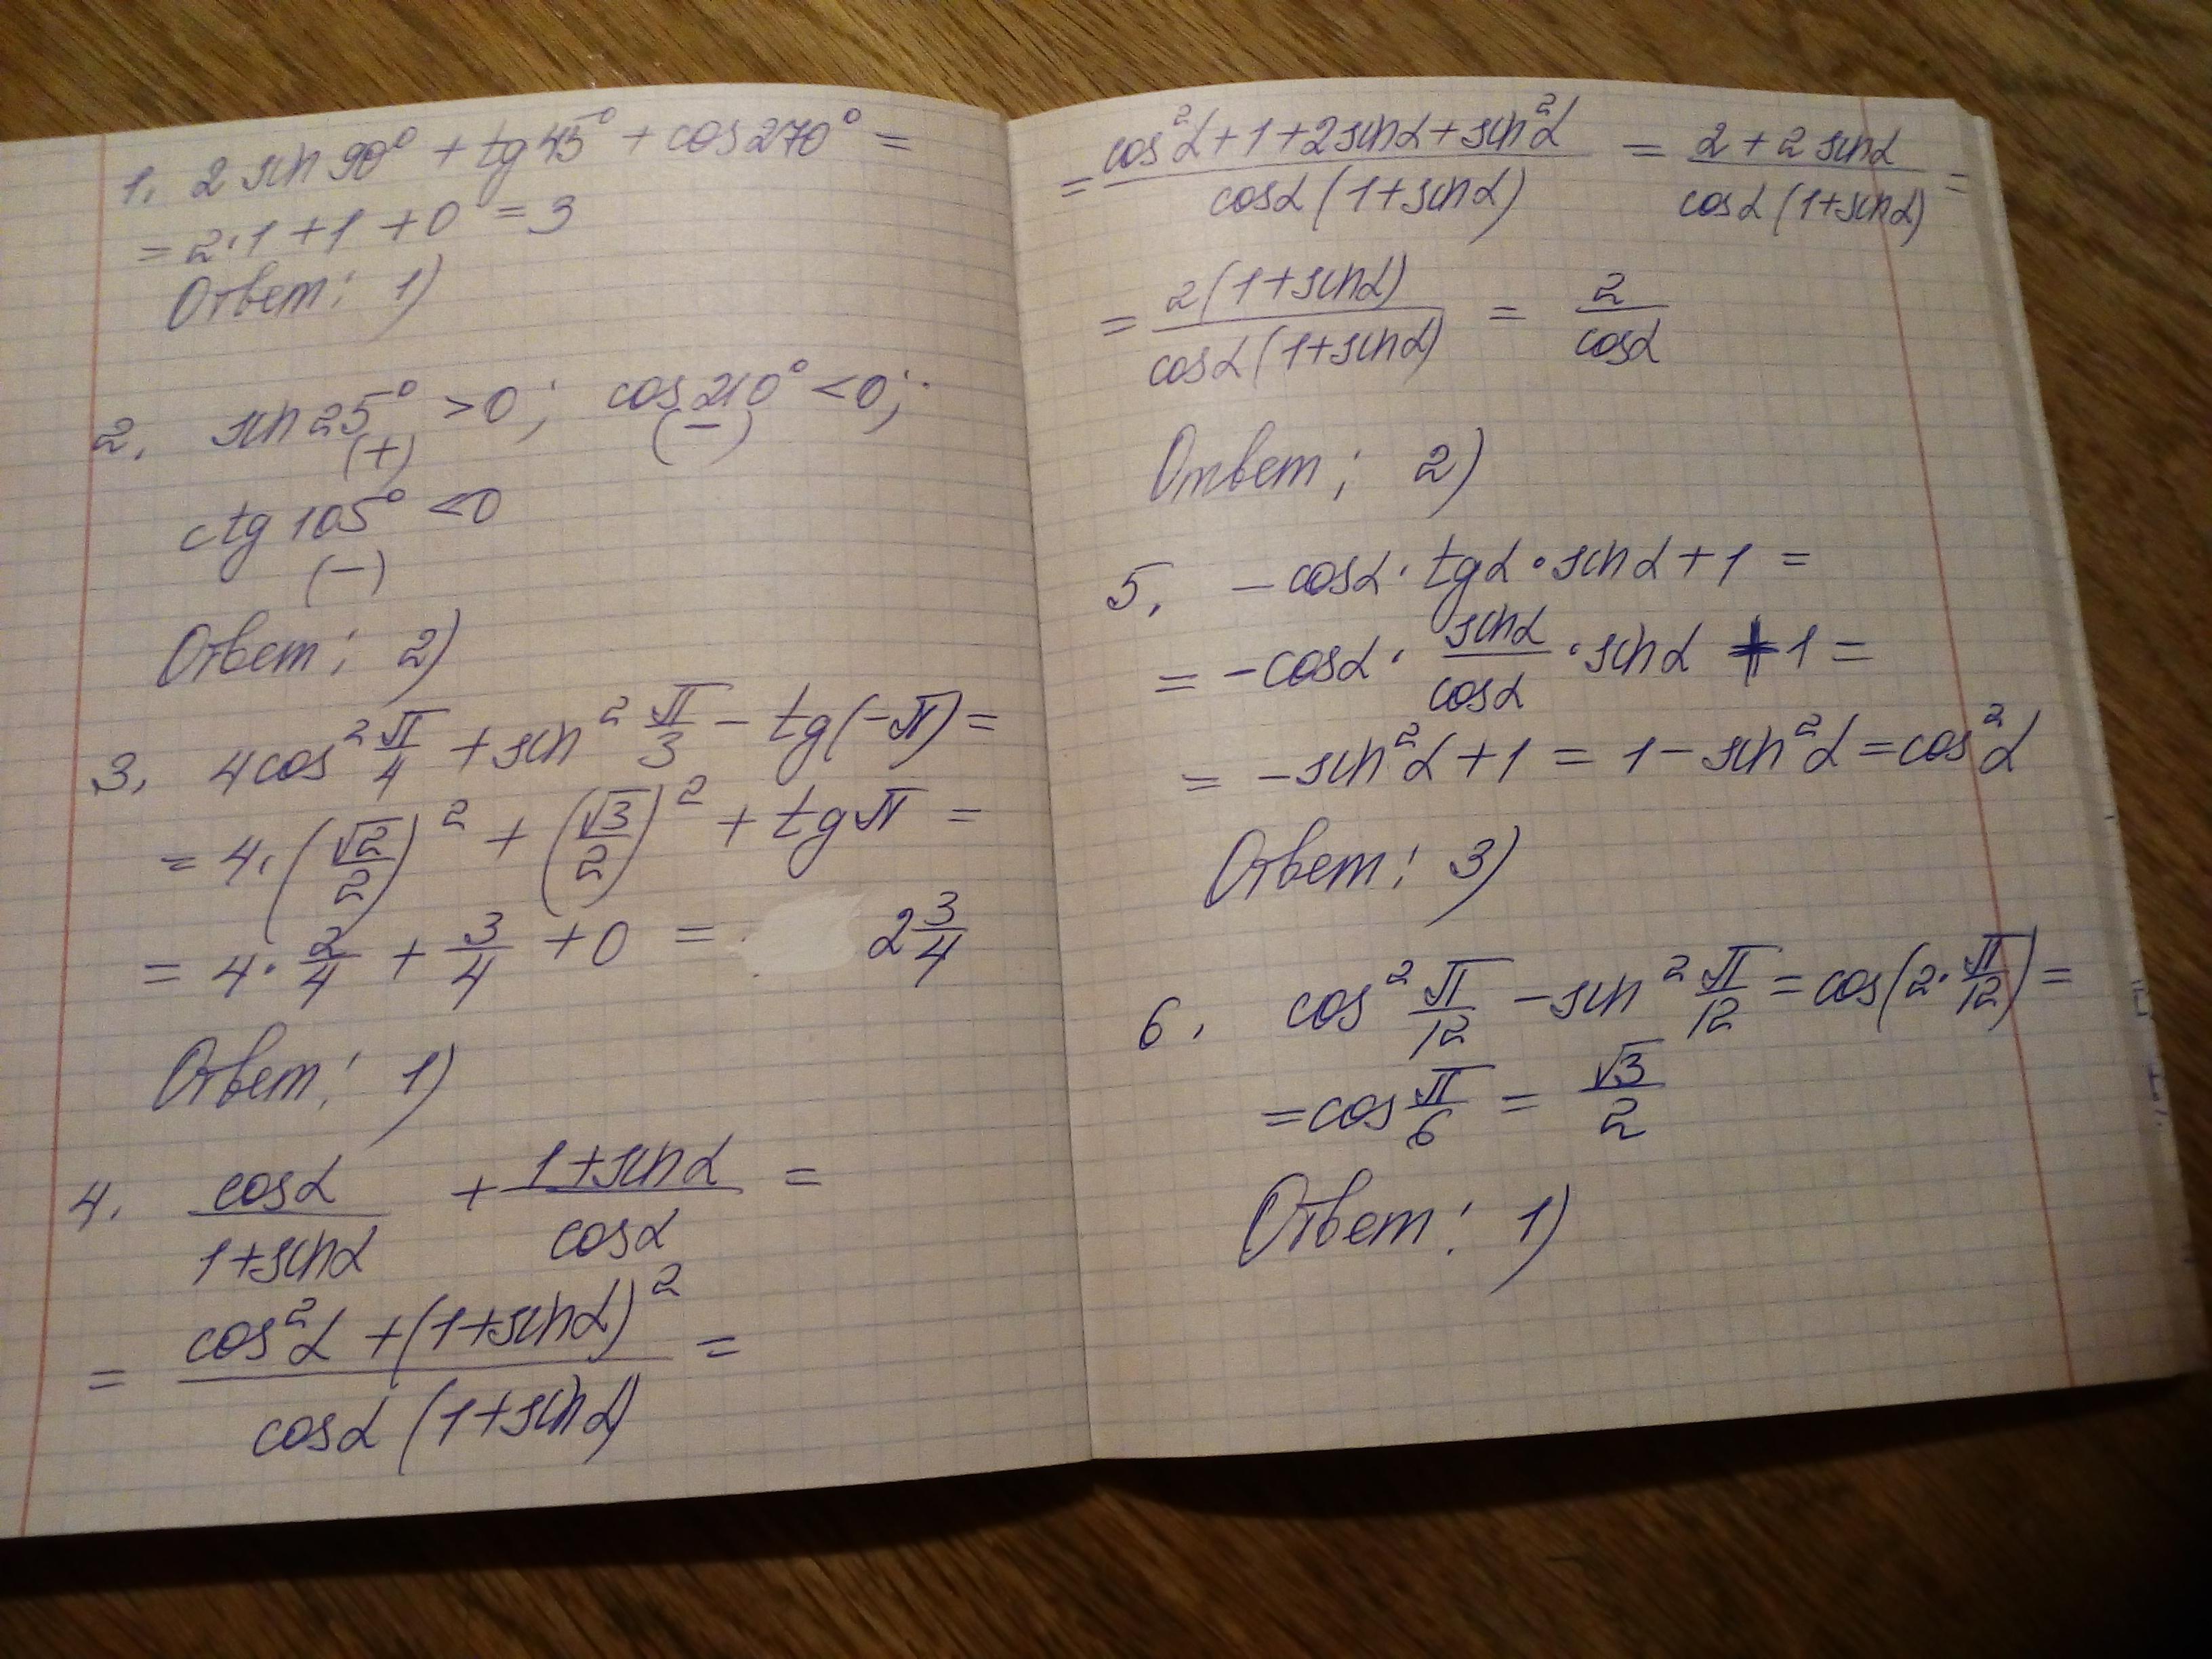 1. 2 sin 90° + tg 45° + cos 270° =
= 2·1 + 1 + 0 = 3
Ответ: 1)
2. sin 25° > 0; cos 210° < 0;
(+) (−)
ctg 105° < 0
(−)
Ответ: 2)
3. 4cos² π/4 + sin² π/3 − tg(−π) =
= 4·(√2/2)² + (√3/2)² + tg π =
= 4·2/4 + 3/4 + 0 = 2 3/4
Ответ: 1)
4. cosα/(1+sinα) + (1+sinα)/cosα =
= (cos²α + (1+sinα)²)/(cosα (1+sinα)) =
= (cos²α + 1 + 2sinα + sin²α)/(cosα (1+sinα)) = (2 + 2 sinα)/(cosα (1+sinα)) =
= 2(1+sinα)/(cosα (1+sinα)) = 2/cosα
Ответ: 2)
5. −cosα · tgα · sinα + 1 =
= −cosα · sinα/cosα · sinα + 1 =
= −sin²α + 1 = 1 − sin²α = cos²α
Ответ: 3)
6. cos² π/12 − sin² π/12 = cos(2·π/12) =
= cos π/6 = √3/2
Ответ: 1)